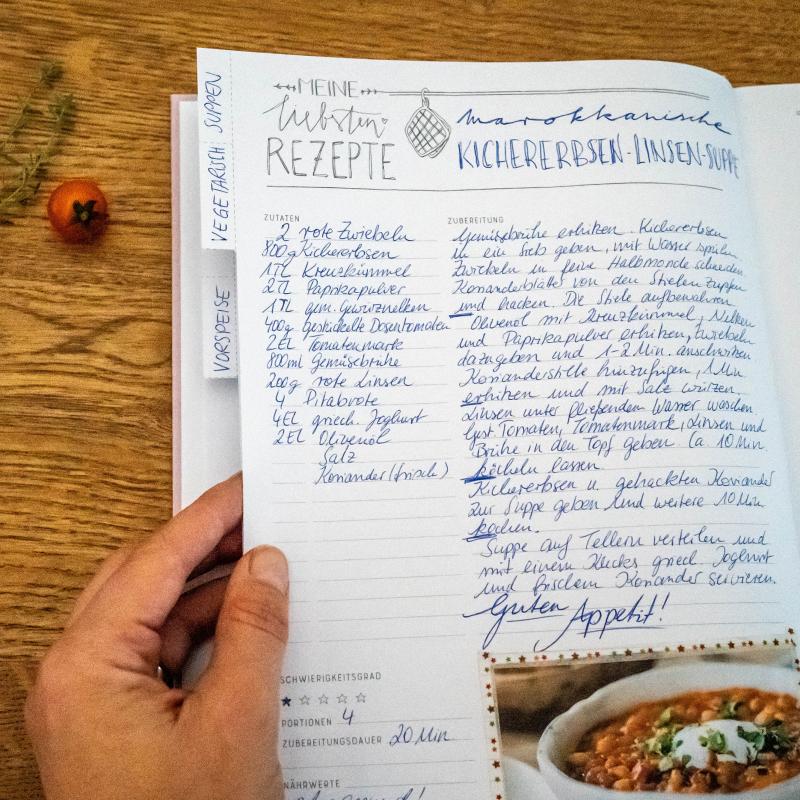 MEINE
liebsten
REZEPTE
marokkanische
KICHERERBSEN-LINSEN-SUPPE
VEGETARISCH SUPPEN
VORSPEISE
ZUTATEN
2 rote Zwiebeln
800g Kichererbsen
1TL Kreuzkümmel
2TL Paprikapulver
1TL gem. Gewürznelken
400g gestückelte Dosentomaten
2EL Tomatenmark
800ml Gemüsebrühe
200g rote Linsen
4 Pitabrote
4EL griech. Joghurt
2EL Olivenöl
Salz
Koriander (frisch)
ZUBEREITUNG
Gemüsebrühe erhitzen. Kichererbsen
in ein Sieb geben, mit Wasser spülen
Zwiebeln in feine Halbmonde schneiden
Korianderblätter von den Stielen zupfen
und hacken. Die Stiele aufbewahren
Olivenöl mit Kreuzkümmel, Nelken
und Paprikapulver erhitzen, Zwiebeln
dazugeben und 1-2 Min. anschwitzen
Korianderstiele hinzufügen, 1 Min
erhitzen und mit Salz würzen.
Linsen unter fließendem Wasser waschen.
Gest. Tomaten, Tomatenmark, Linsen und
Brühe in den Topf geben. Ca. 10 Min
köcheln lassen.
Kichererbsen u. gehackten Koriander
zur Suppe geben und weitere 10 Min
kochen.
Suppe auf Tellern verteilen und
mit einem Klecks griech. Joghurt
und frischem Koriander servieren.
Guten Appetit!
SCHWIERIGKEITSGRAD
PORTIONEN 4
ZUBEREITUNGSDAUER 20 Min
NÄHRWERTE